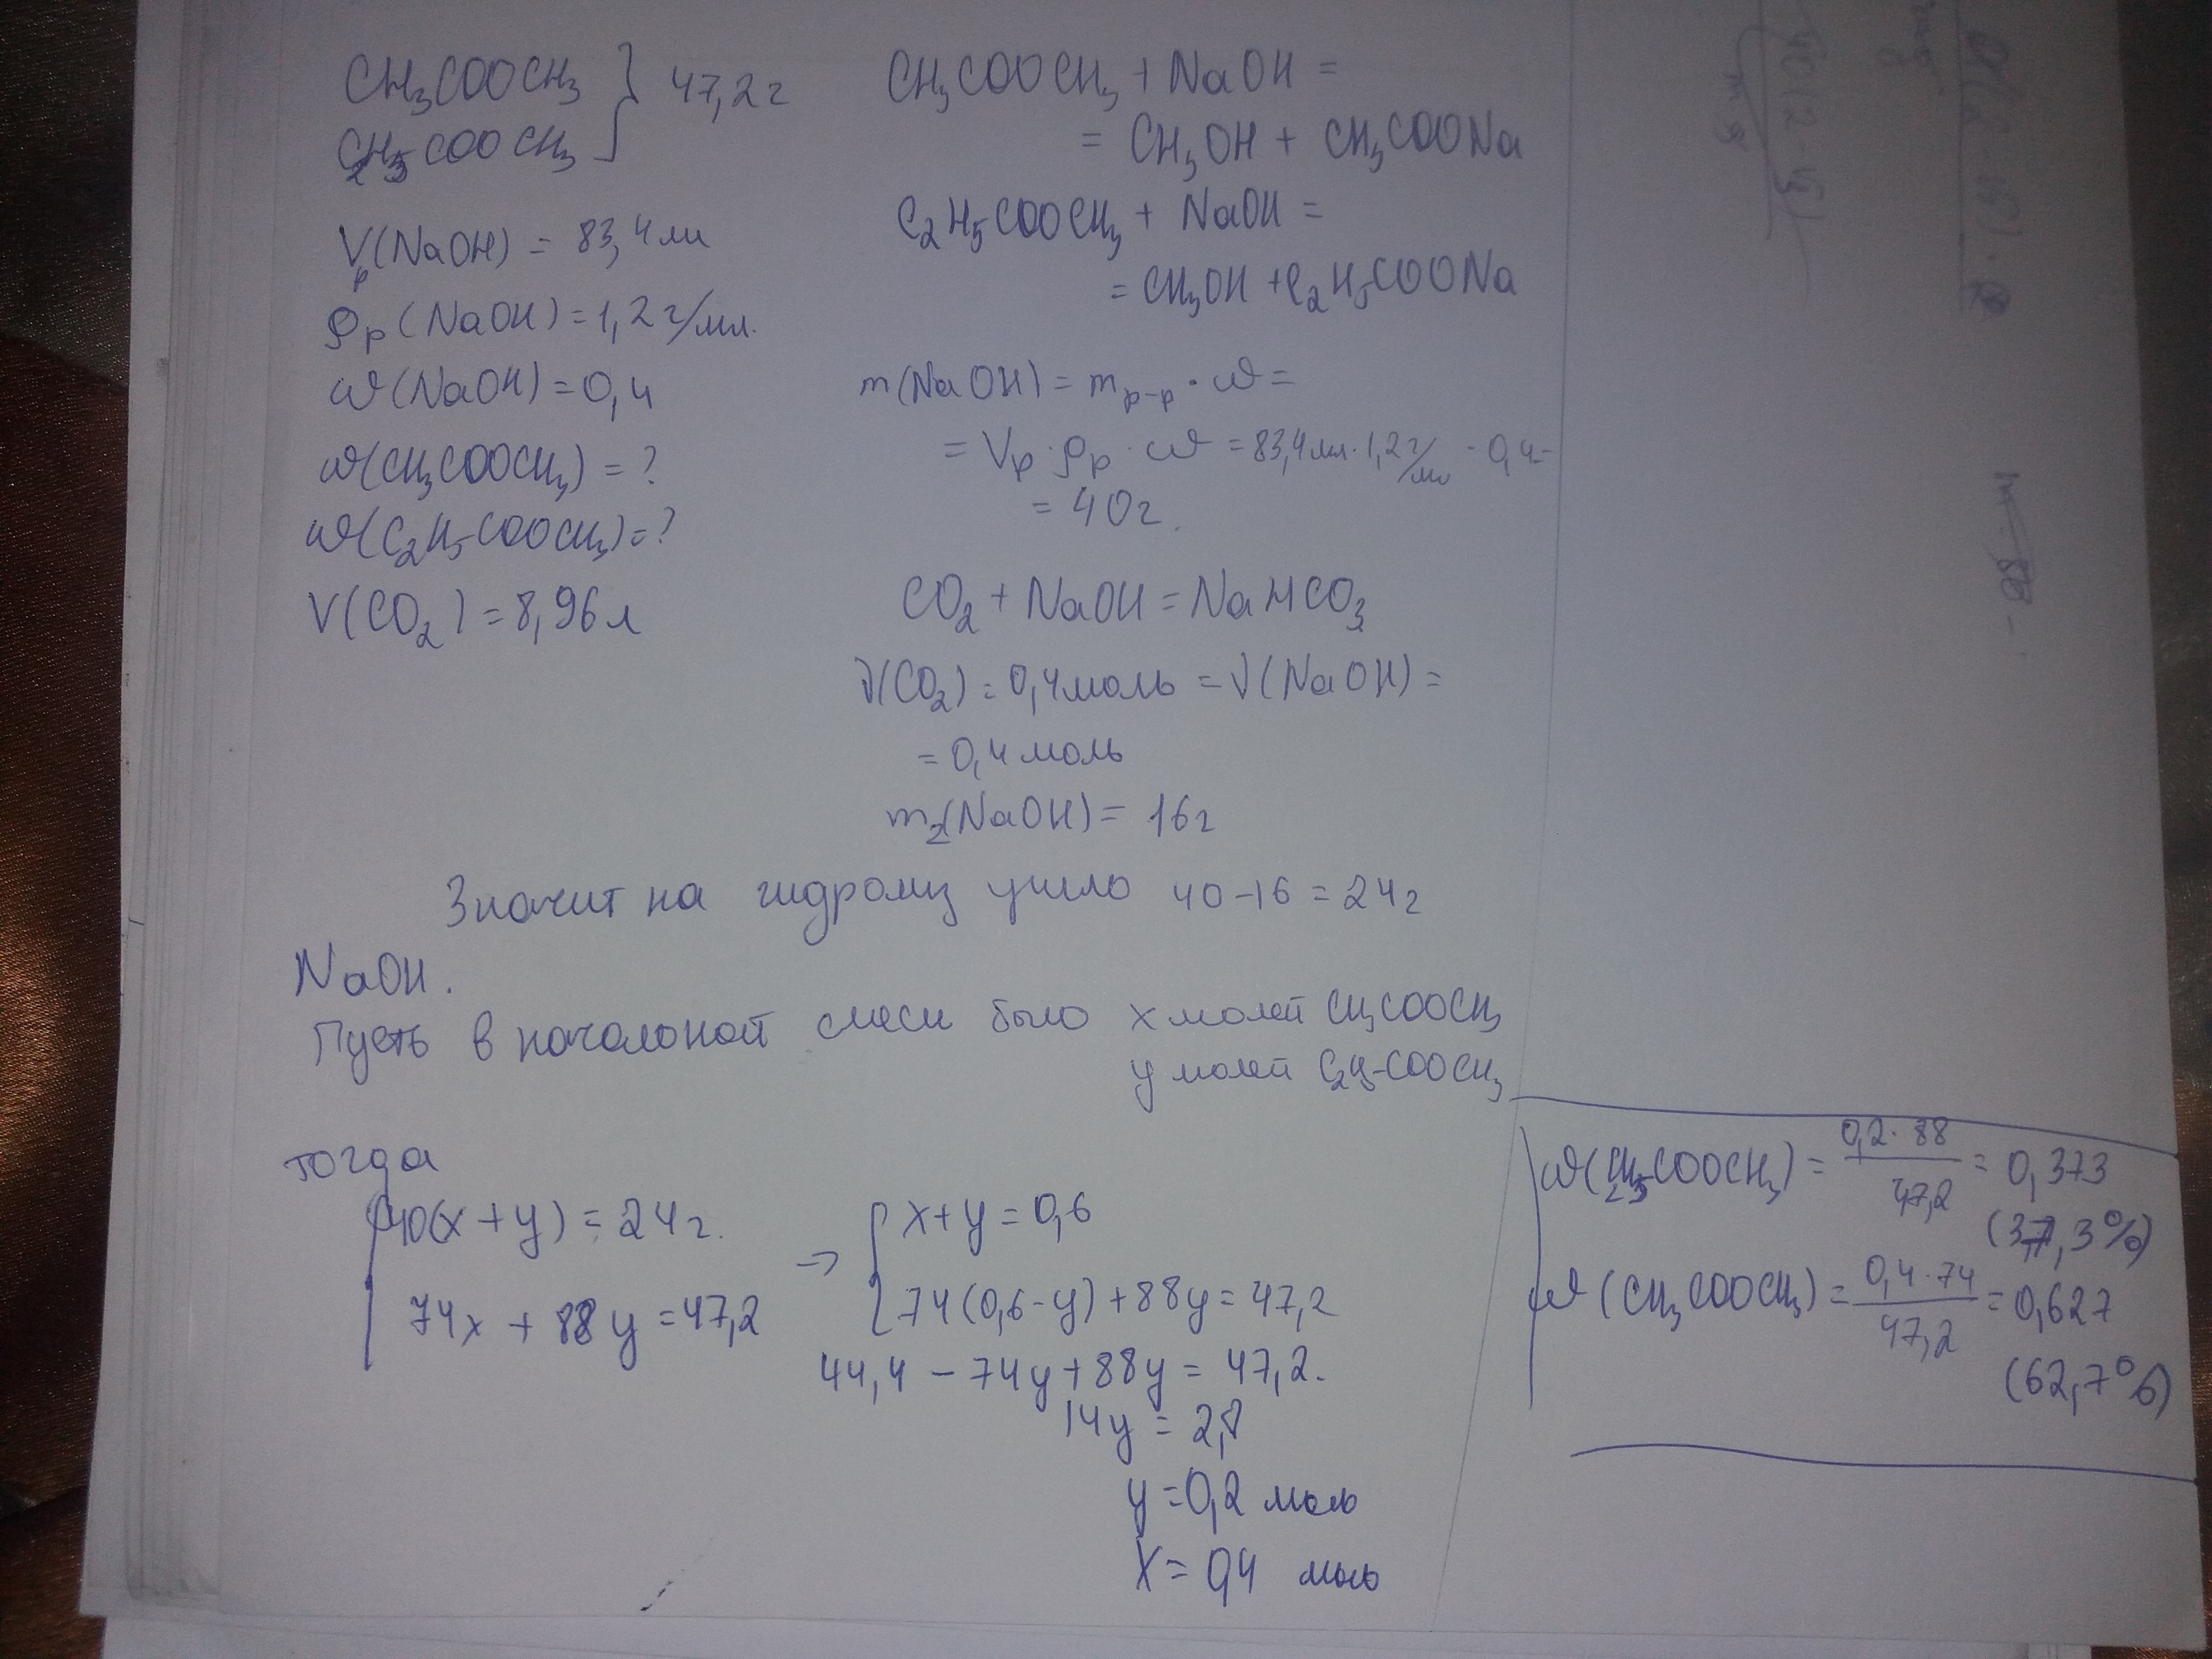 CH₃COOCH₃ } 47,2 г
C₂H₅COOCH₃
Vр(NaOH) = 83,4 мл
ρр(NaOH) = 1,2 г/мл.
ω(NaOH) = 0,4
ω(CH₃COOCH₃) = ?
ω(C₂H₅COOCH₃) = ?
V(CO₂) = 8,96 л
CH₃COOCH₃ + NaOH =
= CH₃OH + CH₃COONa
C₂H₅COOCH₃ + NaOH =
= CH₃OH + C₂H₅COONa
m(NaOH) = mр-р · ω =
= Vр · ρр · ω = 83,4 мл · 1,2 г/мл · 0,4 =
= 40 г.
CO₂ + NaOH = NaHCO₃
ν(CO₂) = 0,4 моль = ν(NaOH) =
= 0,4 моль
m₂(NaOH) = 16 г
Значит на гидролиз ушло 40 - 16 = 24 г
NaOH.
Пусть в начальной смеси было x молей CH₃COOCH₃
y молей C₂H₅COOCH₃
тогда
40(x + y) = 24 г.
74x + 88y = 47,2
→
x + y = 0,6
74(0,6 - y) + 88y = 47,2
44,4 - 74y + 88y = 47,2.
14y = 2,8
y = 0,2 моль
x = 0,4 моль
ω(C₂H₅COOCH₃) = 0,2 · 88 / 47,2 = 0,373
(37,3%)
ω(CH₃COOCH₃) = 0,4 · 74 / 47,2 = 0,627
(62,7%)